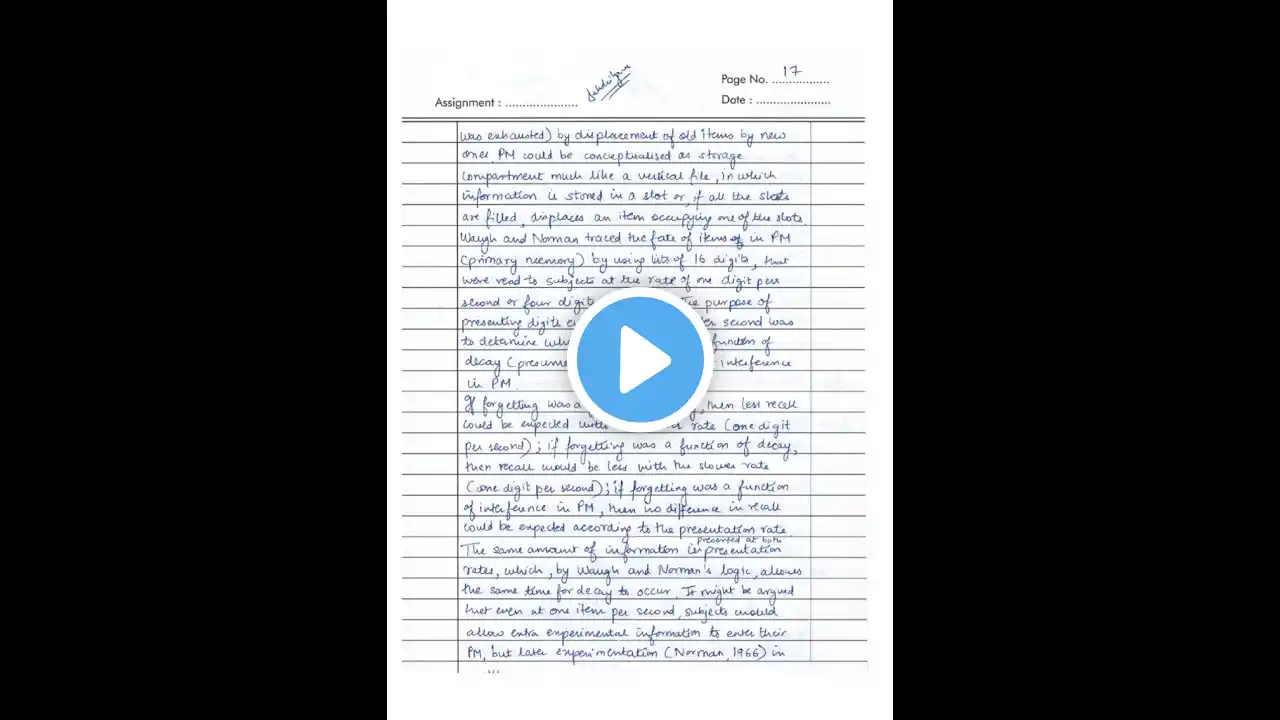 Page No. 17
Assignment :
Date :
was exhausted) by displacement of old items by new
ones. PM could be conceptualised as storage
compartment much like a vertical file, in which
information is stored in a slot or, if all the slots
are filled, displaces an item occupying one of the slots.
Waugh and Norman traced the fate of items of in PM
(primary memory) by using lists of 16 digits, that
were read to subjects at the rate of one digit per
second or four digits purpose of
presenting digits second was
to determine function of
decay interference
in PM.
If forgetting was a , then less recall
could be expected rate (one digit
per second); if forgetting was a function of decay,
then recall would be less with the slower rate
(one digit per second); if forgetting was a function
of interference in PM, then no difference in recall
could be expected according to the presentation rate.
presented at both
The same amount of information is presentation
rates, which, by Waugh and Norman's logic, allows
the same time for decay to occur. It might be argued
that even at one item per second, subjects would
allow extra experimental information to enter their
PM, but later experimentation (Norman, 1966) in